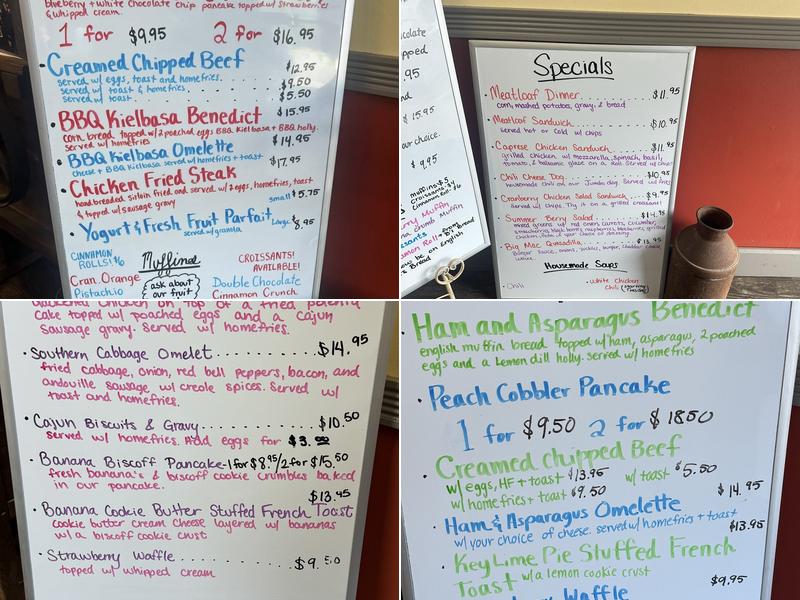 blueberry + white chocolate chip pancake topped w/ strawberries
& whipped cream.
1 for $9.95 2 for $16.95
Creamed Chipped Beef
served w/ eggs, toast and homefries. $12.95
served w/ toast & homefries $9.50
served w/ toast $5.50
BBQ Kielbasa Benedict $15.95
corn bread topped w/ 2 poached eggs BBQ Kielbasa + BBQ holly.
served w/ homefries
BBQ Kielbasa Omelette $14.95
cheese + BBQ Kielbasa served w/ homefries + toast
Chicken Fried Steak $17.95
hand breaded sirloin fried and served w/ 2 eggs, homefries, toast
& topped w/ sausage gravy
small $5.75
Yogurt & Fresh Fruit Parfait Large $8.95
served w/ granola
CINNAMON
ROLLS! $6
Muffins
CROISSANTS!
AVAILABLE!
Cran. Orange
Pistachio
ask about
our fruit
Double Chocolate
Cinnamon Crunch
95
$15.95
our choice.
$9.95
muffins $5
Muffin
Muffin
Roll
on English
Bread
Specials
Meatloaf Dinner $11.95
corn, mashed potatoes, gravy, & bread
Meatloaf Sandwich $10.95
Served hot or Cold w/ chips
Caprese Chicken Sandwich $11.95
grilled chicken w/ mozzarella, spinach, basil,
tomato, & balsamic glaze on a Roll. Served w/ chips
Chili Cheese Dog $10.95
housemade chili on our Jumbo dog. Served w/ fries
Cranberry Chicken Salad Sandwich $9.95
Served w/ chips. Try it on a grilled croissant!
Summer Berry Salad $14.95
mixed greens w/ red onion, carrots, cucumber,
strawberries, blackberries, raspberries, blueberries, grilled
chicken, + of your choice of dressing.
Big Mac Quesadilla
Burger, Sauce, onions, pickles, burger, cheddar cheese
Housemade Soups
· Chili
· White Chicken
Chili
chicken on top of a fried
cake topped w/ poached eggs and a cajun
sausage gravy. Served w/ homefries.
· Southern Cabbage Omelet $14.95
fried cabbage, onion, red bell peppers, bacon, and
andouille sausage, w/ creole spices. Served w/
toast and homefries.
· Cajun Biscuits & Gravy $10.50
served w/ homefries. Add eggs for $3.00
· Banana Biscoff Pancake-1 for $8.95/2 for $15.50
fresh banana's & biscoff cookie crumbles baked
in our pancake.
$13.45
· Banana Cookie Butter Stuffed French Toast
cookie butter cream cheese layered w/ bananas
w/ a biscoff cookie crust
· Strawberry Waffle $9.50
topped w/ whipped cream
Ham and Asparagus Benedict
english muffin bread topped w/ ham, asparagus, 2 poached
eggs and a Lemon dill holly. served w/ homefries
· Peach Cobbler Pancake
1 for $9.50 2 for $18.50
· Creamed Chipped Beef
w/ eggs, HF + toast $13.95 w/ toast $5.50
w/ homefries + toast $9.50
· Ham & Asparagus Omelette $14.95
w/ your choice of cheese. served w/ homefries + toast
$13.95
· Key Lime Pie Stuffed French
Toast w/ a lemon cookie crust
$9.95
Waffle